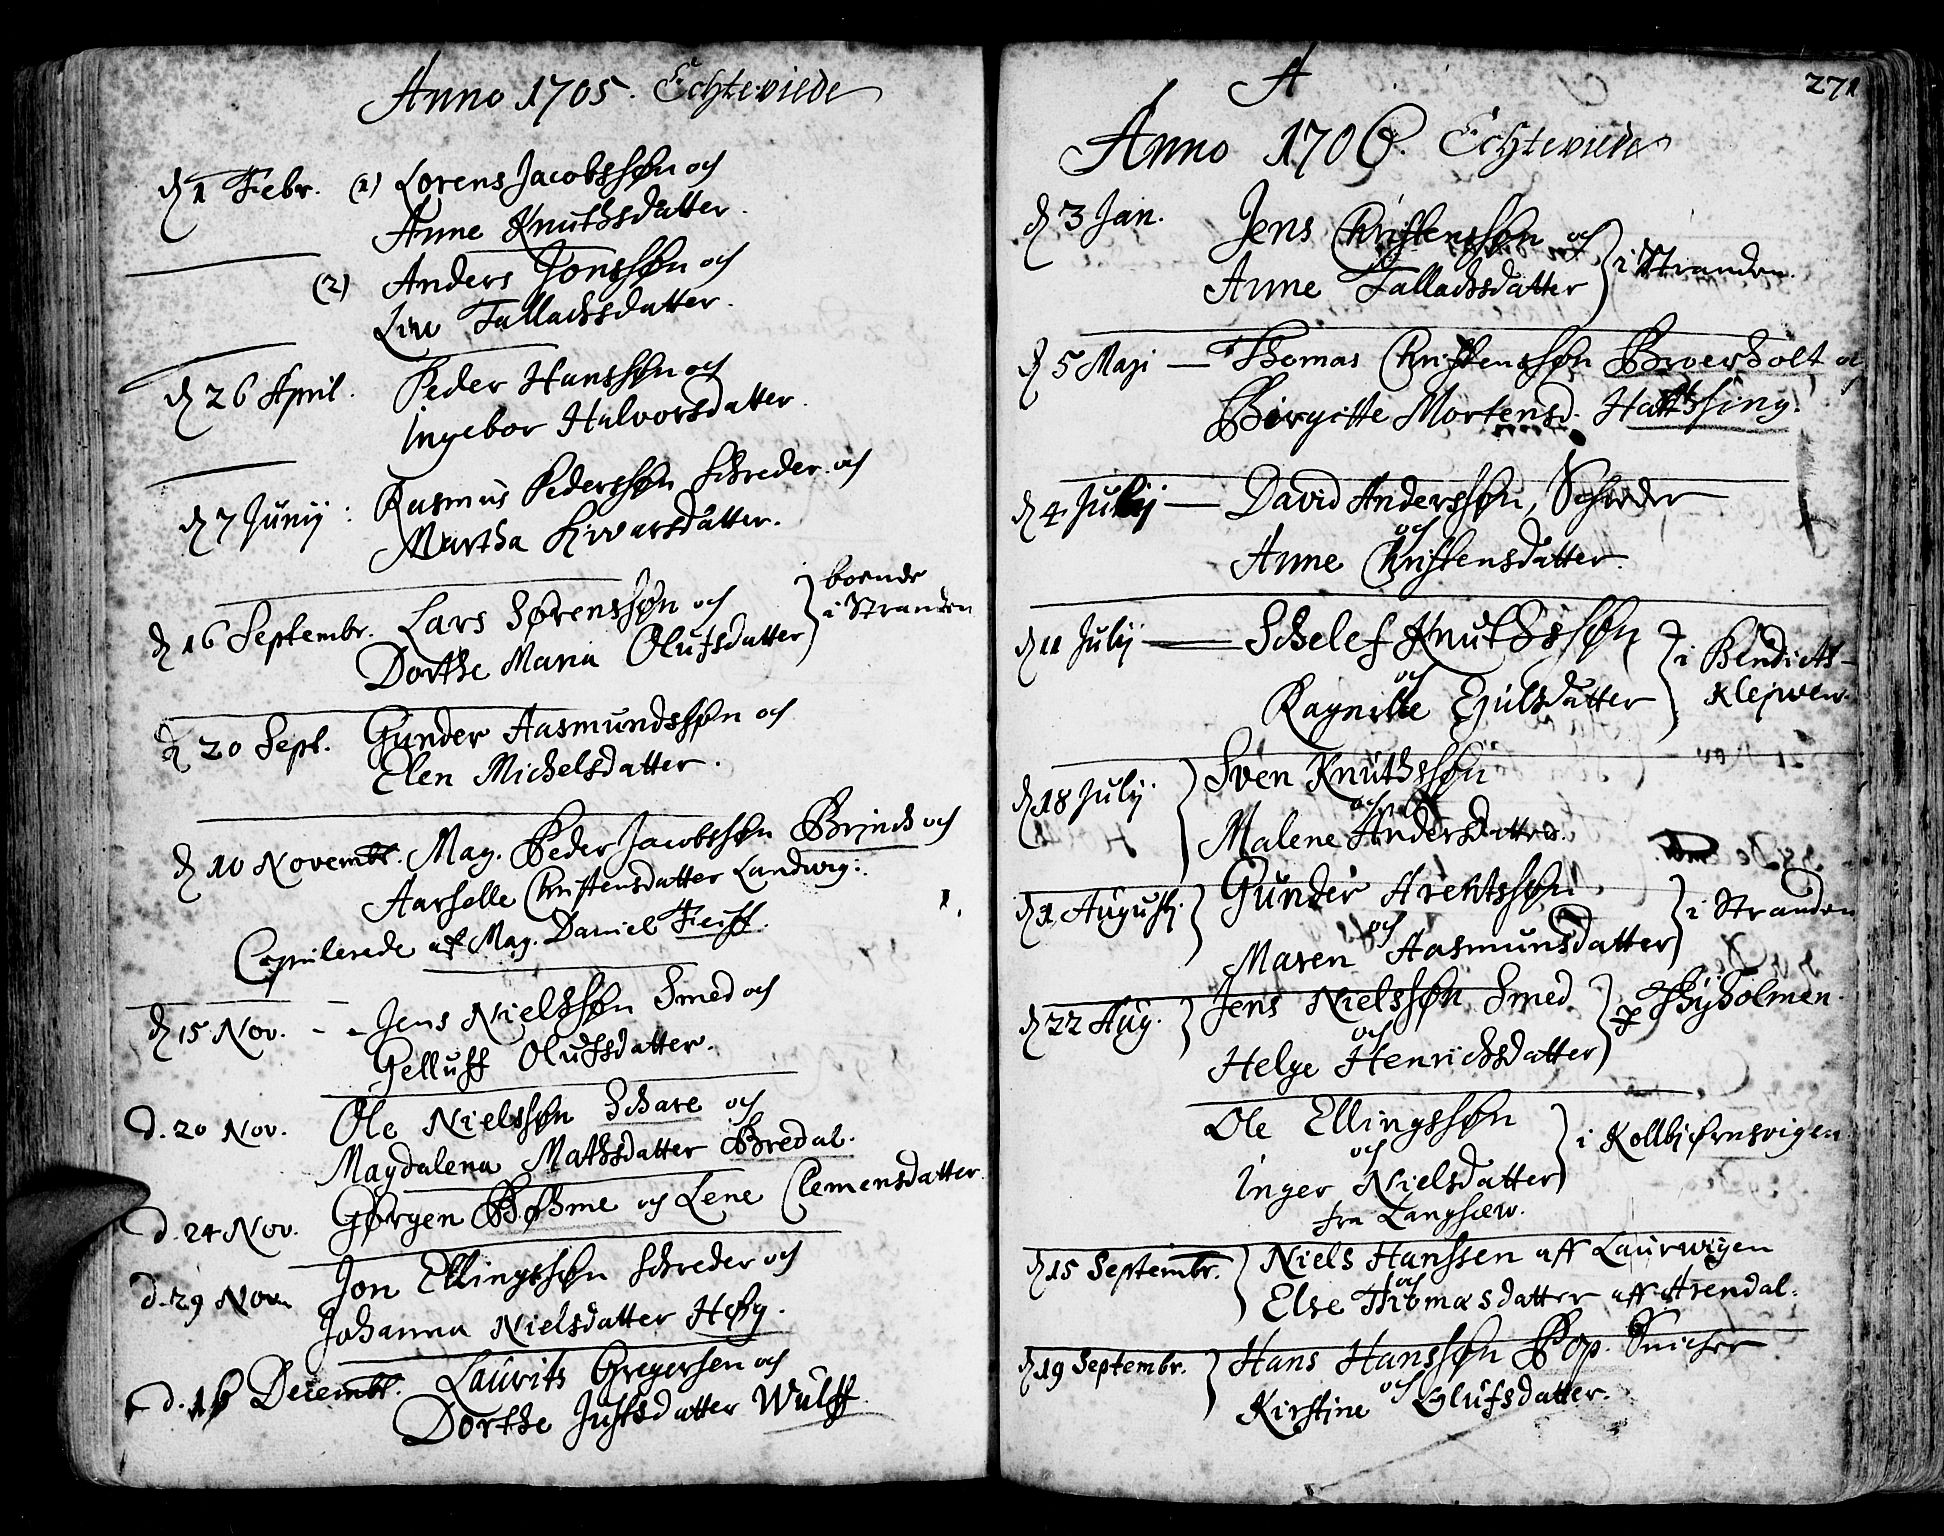 Anno 1705. Echteviede
d 1 Febr. (1) Lorens Jacobssøn och
Anne Knuthsdatter.
(2) Anders Jonssøn och
Liw Tallachsdatter.
d 26 April. Peder Hanssøn och
Ingebor Halvorsdatter.
d 7 Junij: Rasmus Pederssøn Schreder och
Martha Siwarsdatter.
d 16 Septembr. Lars Sørenssøn och } boende
Dorthe Maria Olufsdatter } i Stranden
d 20 Sept. Gunder Aasmundssøn och
Elen Michelsdatter.
d 10 Novembr. Mag. Peder Jacobssøn Brinch och
Aarselle Christensdatter Landwig:
Copulerede af Mag. Daniel
d 15 Nov. - - Jens Nielssøn Smed och
Gelluff Olufsdatter.
d. 20 Nov. Ole Nielssøn Schare och
Magdalena Mathsdatter Bredal.
d. 24 Nov. Gørgen Bøhme och Lene Clemensdatter.
d. 29 Nov. Jon Ellingssøn Schreder och
Johanna Nielsdatter Høy.
d. 16 Decembr. Laurits Gregersen och
Dorthe Justsdatter Wulff
A 271
Anno 1706. Echteviede
d 3 Jan. Jens Christenssøn och
Anne Tallachsdatter } i Stranden.
d 5 Maji — Thomas Christenssøn Bverholt och
Birgitte Mortensd.
d 4 Julij — David Anderssøn, Schreder
och
Anne Christensdatter.
d 11 Julij — Schelef Knuthssøn
och } i Bendicts-
Ragnille Ejulsdatter Klejwen.
d 18 Julij. Sven Knuthssøn
och
Malene Andersdatter.
d 1 Augusti. Gunder Arentssøn
och } i Stranden
Maren Aasmunsdatter
d 22 Aug. Jens Nielssøn Smed
och } på Thyholmen.
Helge Henrichsdatter
Ole Ellingssøn
och } i Kollbjørnsvigen
Inger Nielsdatter
fra Langsæw.
d 15 Septembr. Niels Hanssen aff Laurwigen
och
Else Thomæsdatter aff Arendal.
d 19 Septembr. Hans Hanssøn Pop. Snicher
och
Kirstine Olufsdatter.